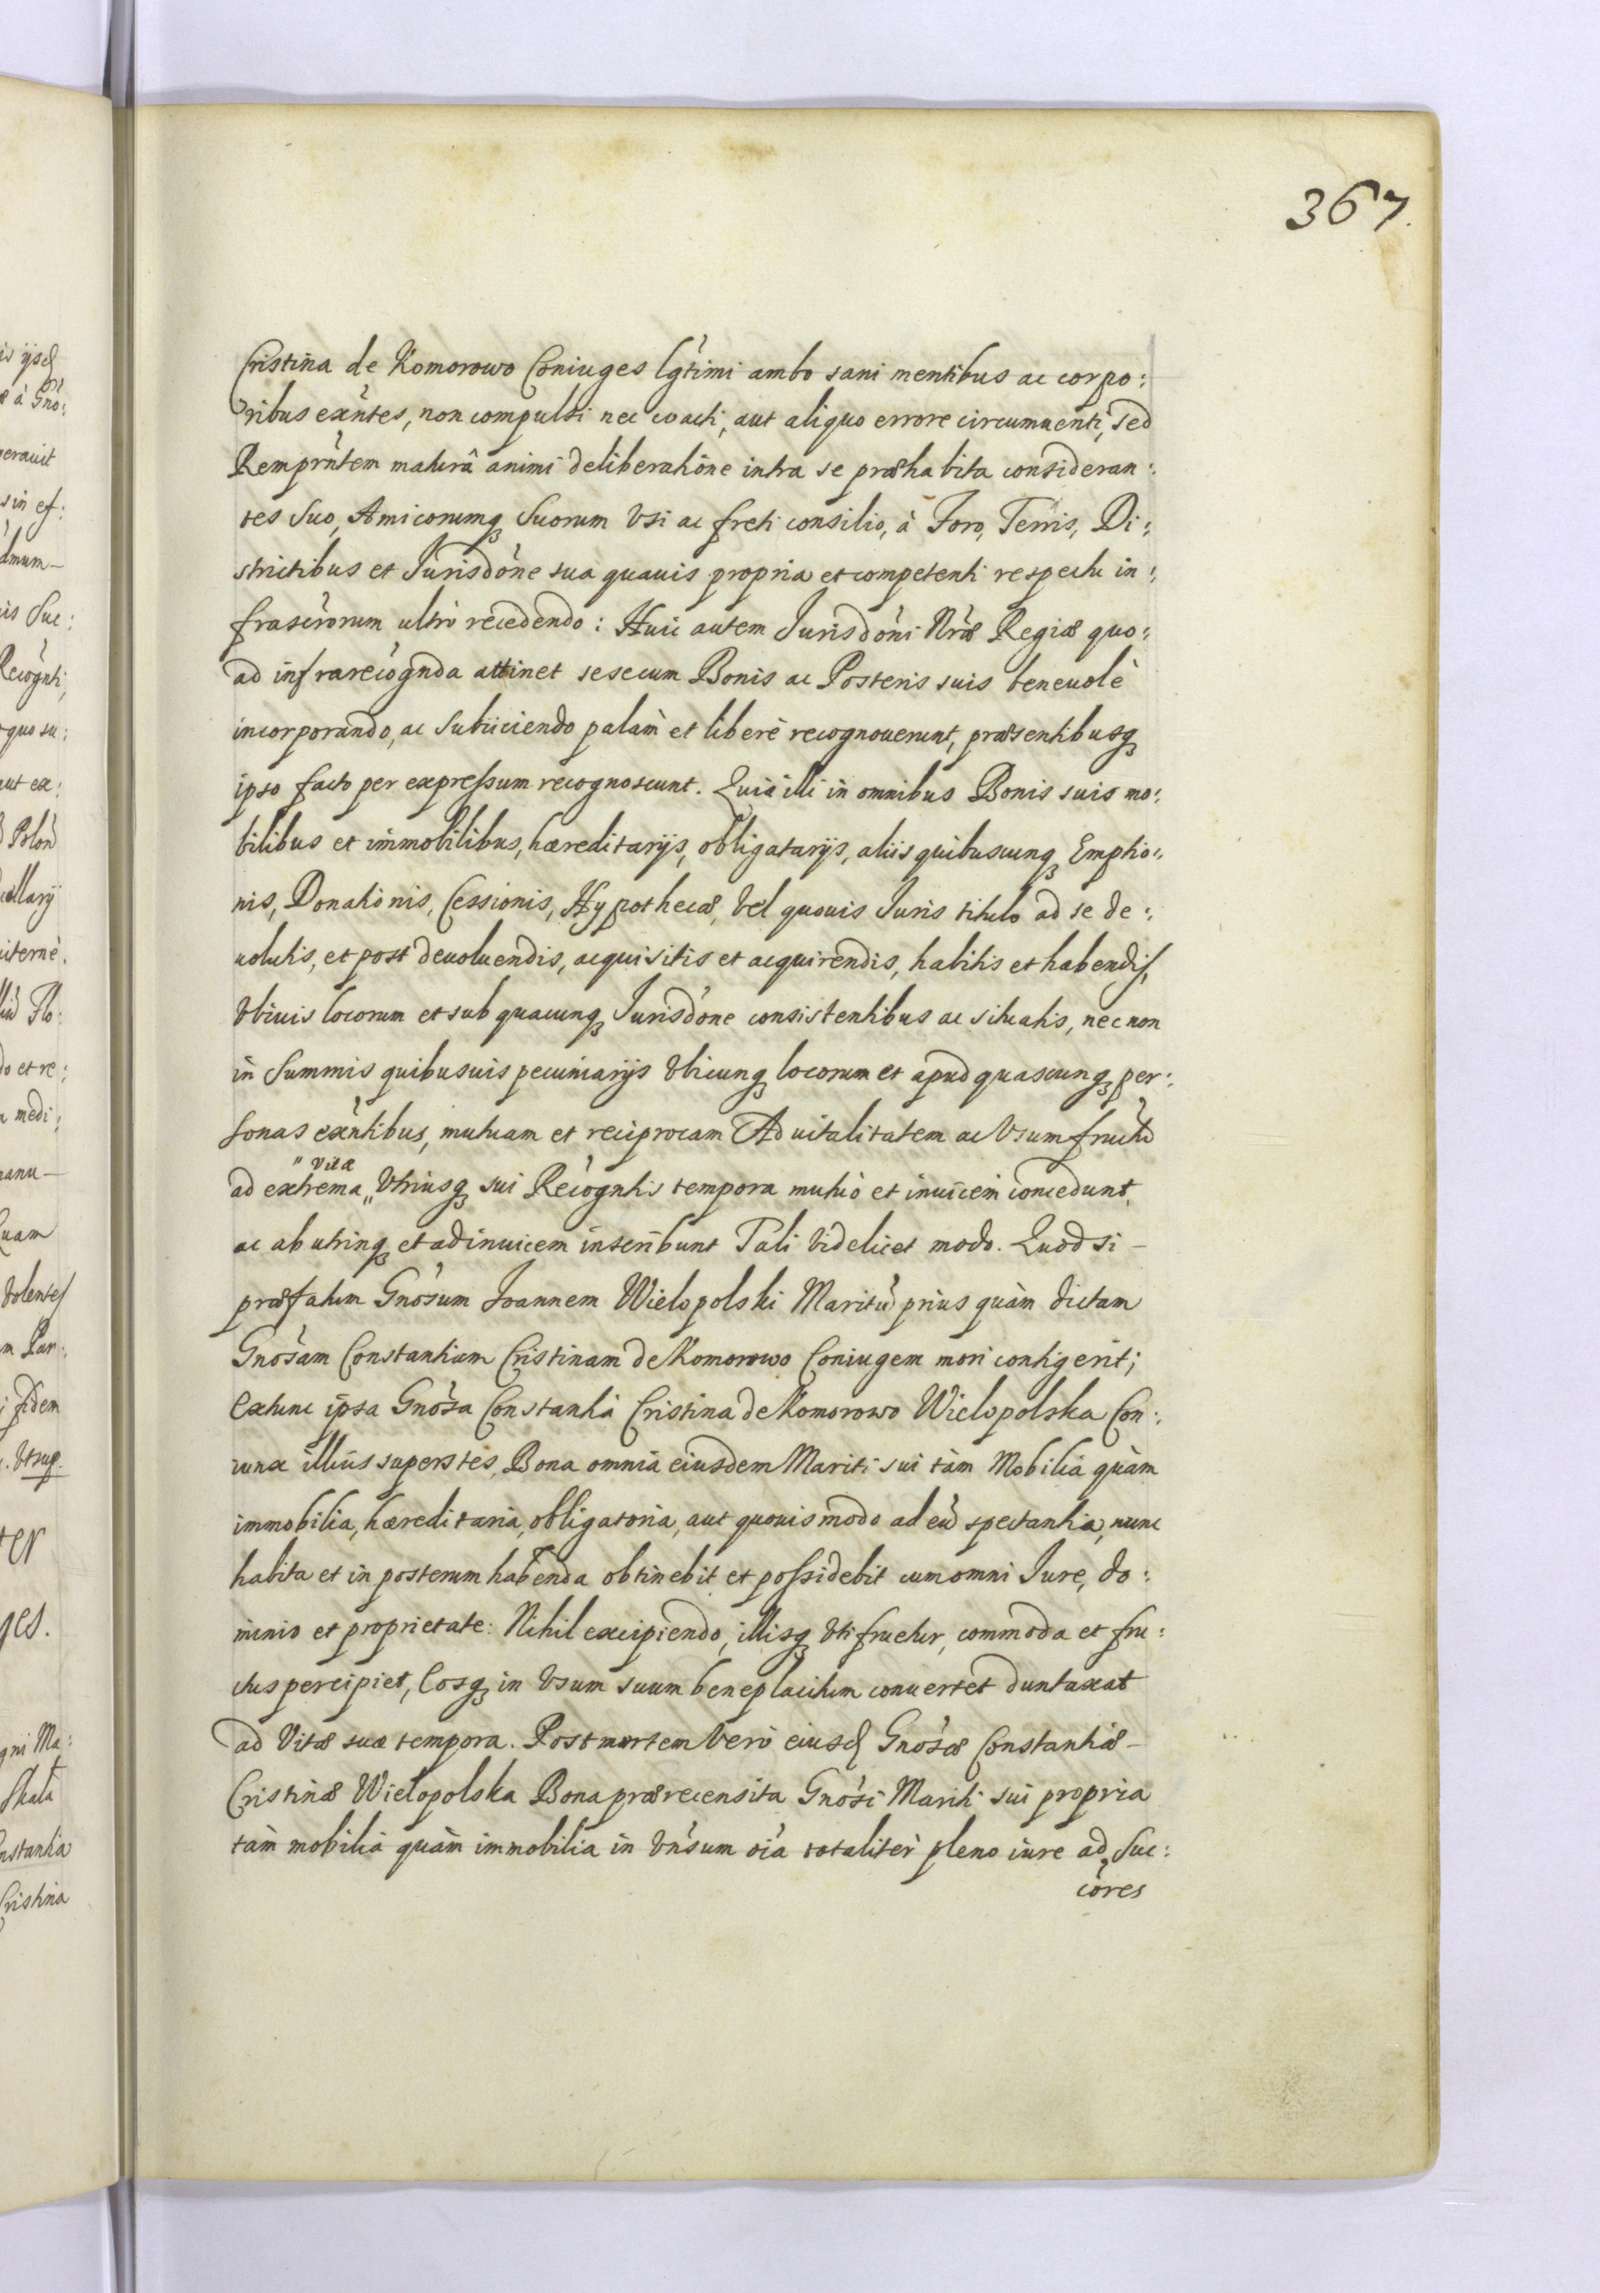 367.
Cristina de Komorowo Coniuges lgtimi ambo sani mentibus ac corpo:
ribus exntes, non compulsi nec coacti, aut aliquo errore circumuenti, sed
Remprntem maturâ animi deliberatione intra se præhabita consideran:
tes Suo, Amicorumq Suorum Vsi ac freti consilio, à Foro, Terris, Di:
strictibus et Jurisdòne sua quauis propria et competenti respectu in:
frascrorum ultrò recedendo: Huic autem Jurisdòni Nræ Regiæ quo:
ad infrarecognda attinet sesecum Bonis ac Posteris suis beneuolè
incorporando, ac Subiiciendo palàm et liberè recognouerunt, præsentibusq
ipso facto per expreſsum recognoscunt. Quia illi in omnibus Bonis suis mo:
bilibus et immobilibus, hæreditarijs, obligatarijs, aliis quibuscunq Emptio:
nis, Donationis, Cessionis, Hypothecæ, Vel quouis Juris titulo ad se de:
uolutis, et post deuoluendis, acquisitis et acquirendis, habitis et habendis,
Vbiuis locorum et sub quacunq Jurisdòne consistentibus ac situatis, nec non
in Summis quibusuis pecuniarijs Vbicunq locorum et apud quascunq per:
sonas exntibus, mutuam et reciprocam Aduitalitatem ac Vsumfructũ
" Vitæ
ad extrema " Vtriusq sui Recogntis tempora mutuò et inuicem concedunt,
ac ab utrinq et adinuicem inscribunt Tali Videlicet modo. Quod si –
præfatum Gnosum Joannem Wielopolski Maritũ prius quàm dictam
Gnosam Constantiam Cristinam de Komorowo Coniugem mori contigerit;
Extunc ipsa Gnosa Constantia Cristina de Komorowo Wielopolska Con:
iunx illius superstes, Bona omnia eiusdem Mariti sui tàm Mobilia quàm
immobilia, hæreditaria, obligatoria, aut quouis modo ad eũ spectantia, nunc
habita et in posterum habenda obtinebit et poſsidebit cum omni Jure, do:
minio et proprietate: Nihil excipiendo, illisq Vtifruetur, commoda et fru:
ctus percipiet, Eosq in Vsum suum beneplacitum conuertet duntaxat
ad Vitæ suæ tempora. Post mortem Verò eiusd Gnosæ Constantiæ –
Cristinæ Wielopolska Bona prærecensita Gnosi Mariti sui propria
tàm mobilia quàm immobilia in Vnsum oia totaliter pleno iure ad Suc:
còres